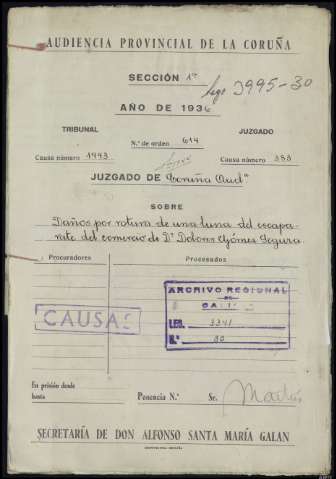 AUDIENCIA PROVINCIAL DE LA CORUÑA
SECCIÓN 1ª
lego 3995-30
AÑO DE 1936
TRIBUNAL
JUZGADO
N.º de orden 614
Causa número 1993
Causa número 333
JUZGADO DE Coruña Aud.ª
SOBRE
Daños por rotura de una luna del escapa-
rate del comercio de Dª Dolores Gómez Segura
Procuradores
Procesados
CAUSAS
ARCHIVO REGIONAL
DE
GA
LEG. 3341
N.º 30
En prisión desde
hasta
Ponencia N.º
Sr.
SECRETARÍA DE DON ALFONSO SANTA MARÍA GALAN